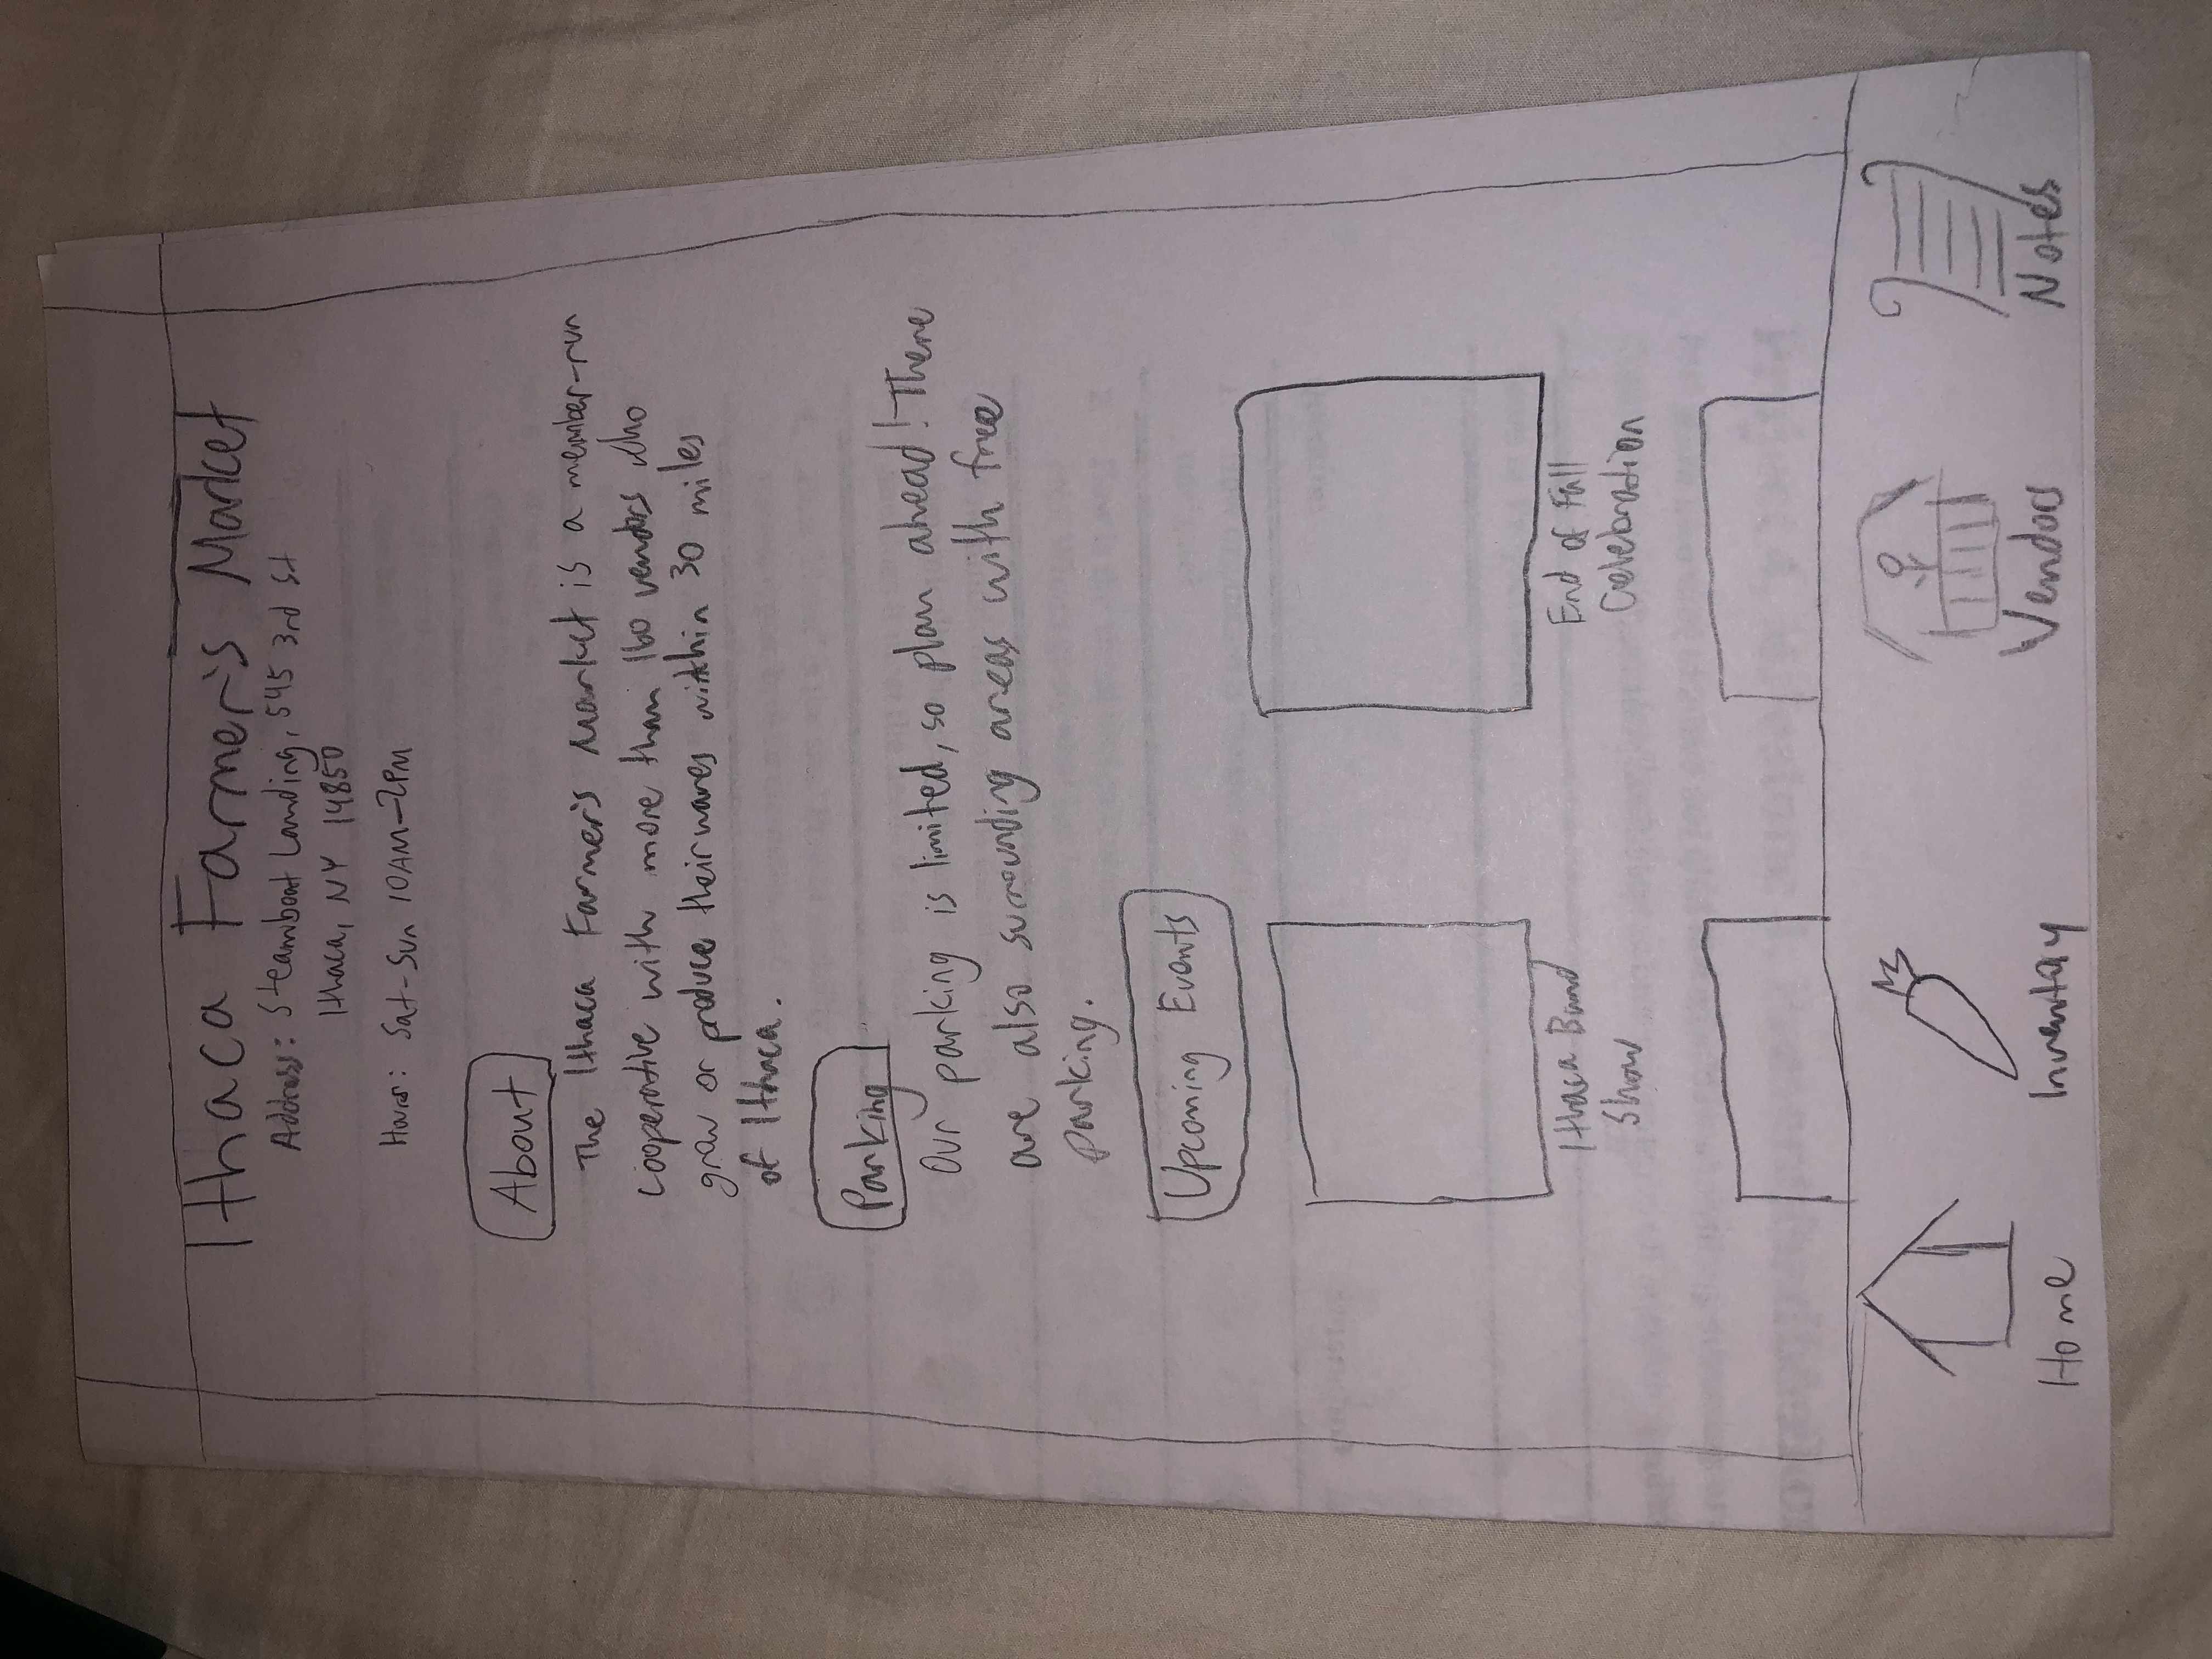 Ithaca Farmer's Market
Address: Steamboat Landing, 545 3rd St
Ithaca, NY 14850
Hours: Sat-Sun 10AM-2PM
About
The Ithaca Farmer's Market is a member-run
cooperative with more than 160 vendors who
grow or produce their wares within 30 miles
of Ithaca.
Parking
Our parking is limited, so plan ahead! There
are also surrounding areas with free
parking.
Upcoming Events
Ithaca Band
Show
End of Fall
Celebration
Home
Inventory
Vendors
Notes